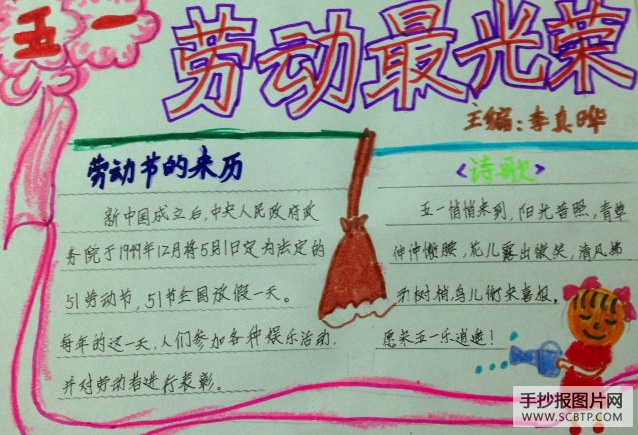 五一
劳动最光荣
主编:李真晔
劳动节的来历
新中国成立后,中央人民政府政
务院于1949年12月将5月1日定为法定的
51劳动节,51节全国放假一天。
每年的这一天,人们参加各种娱乐活动,
并对劳动者进行表彰。
<诗歌>
五一悄悄来到,阳光普照,青草
伸伸懒腰,花儿露出微笑,清风拂
动树梢,鸟儿衔来喜报,
愿来五一乐逍遥!
手抄报图片网
WWW.SCBTP.COM